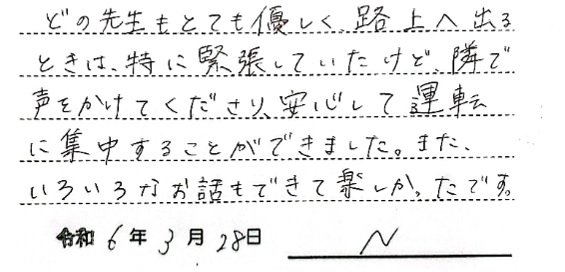 どの先生もとても優しく、路上へ出る
ときは、特に緊張していたけど、隣で
声をかけてくださり、安心して運転
に集中することができました。また、
いろいろなお話もできて楽しかったです。
令和 6 年 3 月 28 日 N